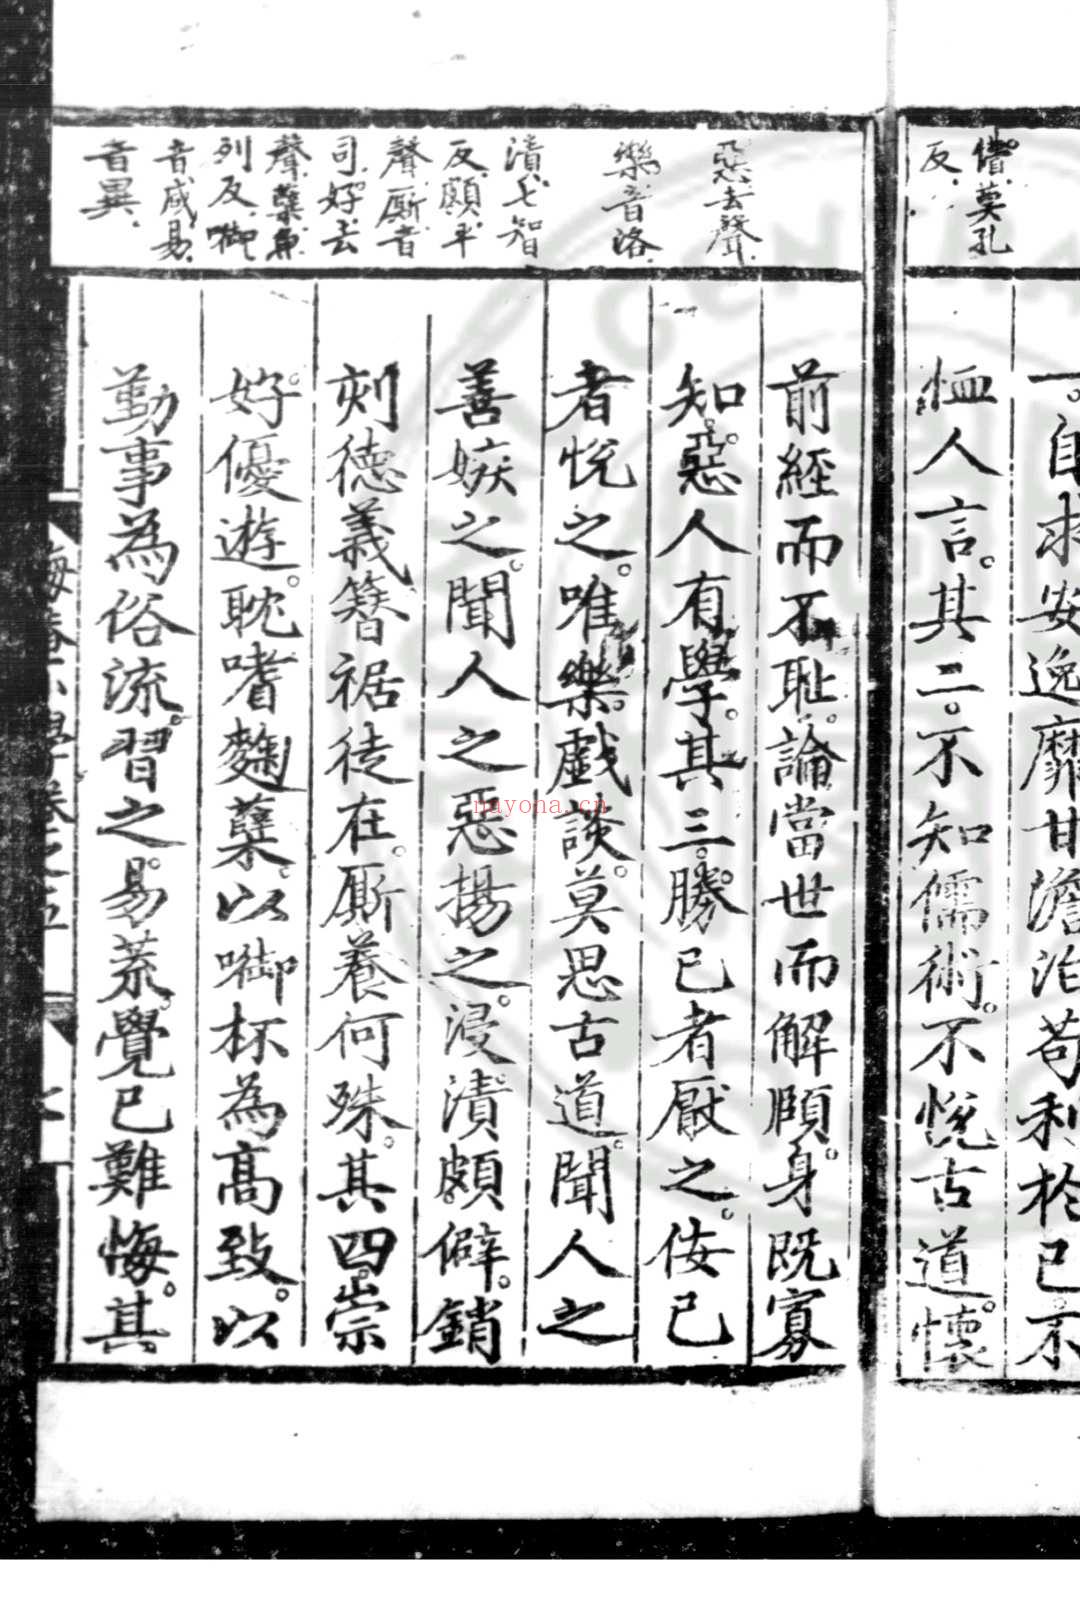 懵莫孔
反
一。自求安逸靡甘澹泊苟利於已。不
恤人言。其二。不知儒術。不悅古道。懵
惡去聲
樂音洛
漬七智
反頗平
聲厮音
司好去
聲蘖魚
列反啣
音咸易
音異
前經而不恥。論當世而解頤。身既寡
知。惡人有學。其三。勝已者厭之。佞已
者悅之。唯樂戲談。莫思古道。聞人之
善嫉之。聞人之惡揚之。浸漬頗僻。銷
刻德義簪裾徒在。厮養何殊。其四。崇
好優遊。耽嗜麴蘖。以啣杯為高致。以
勤事為俗流。習之易荒。覺已難悔。其
nayona.cn